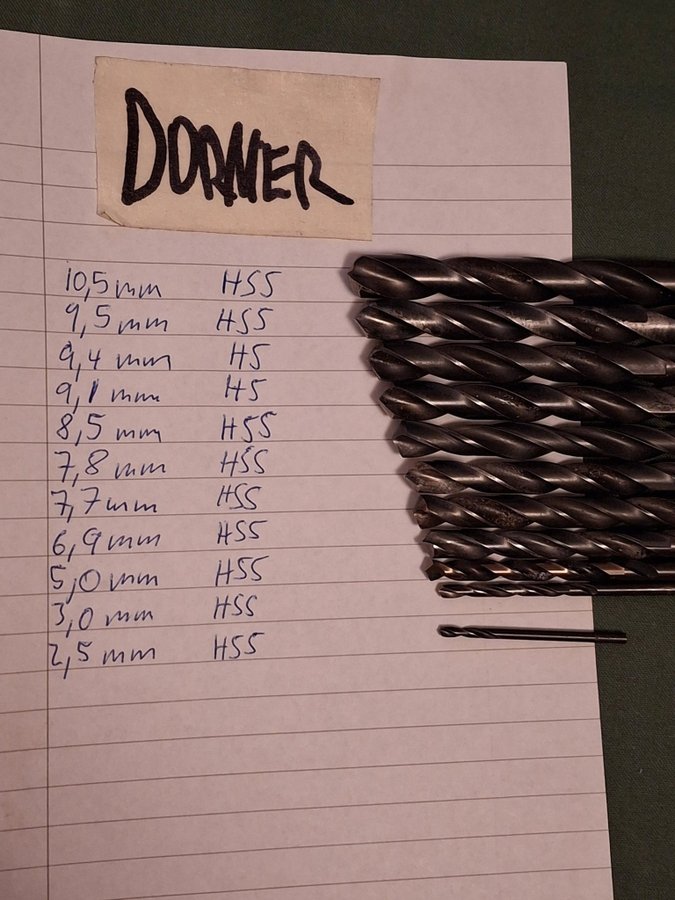 DORMER
10,5 mm HSS
9,5 mm HSS
9,4 mm HS
9,1 mm HS
8,5 mm HSS
7,8 mm HSS
7,7 mm HSS
6,9 mm HSS
5,0 mm HSS
3,0 mm HSS
2,5 mm HSS